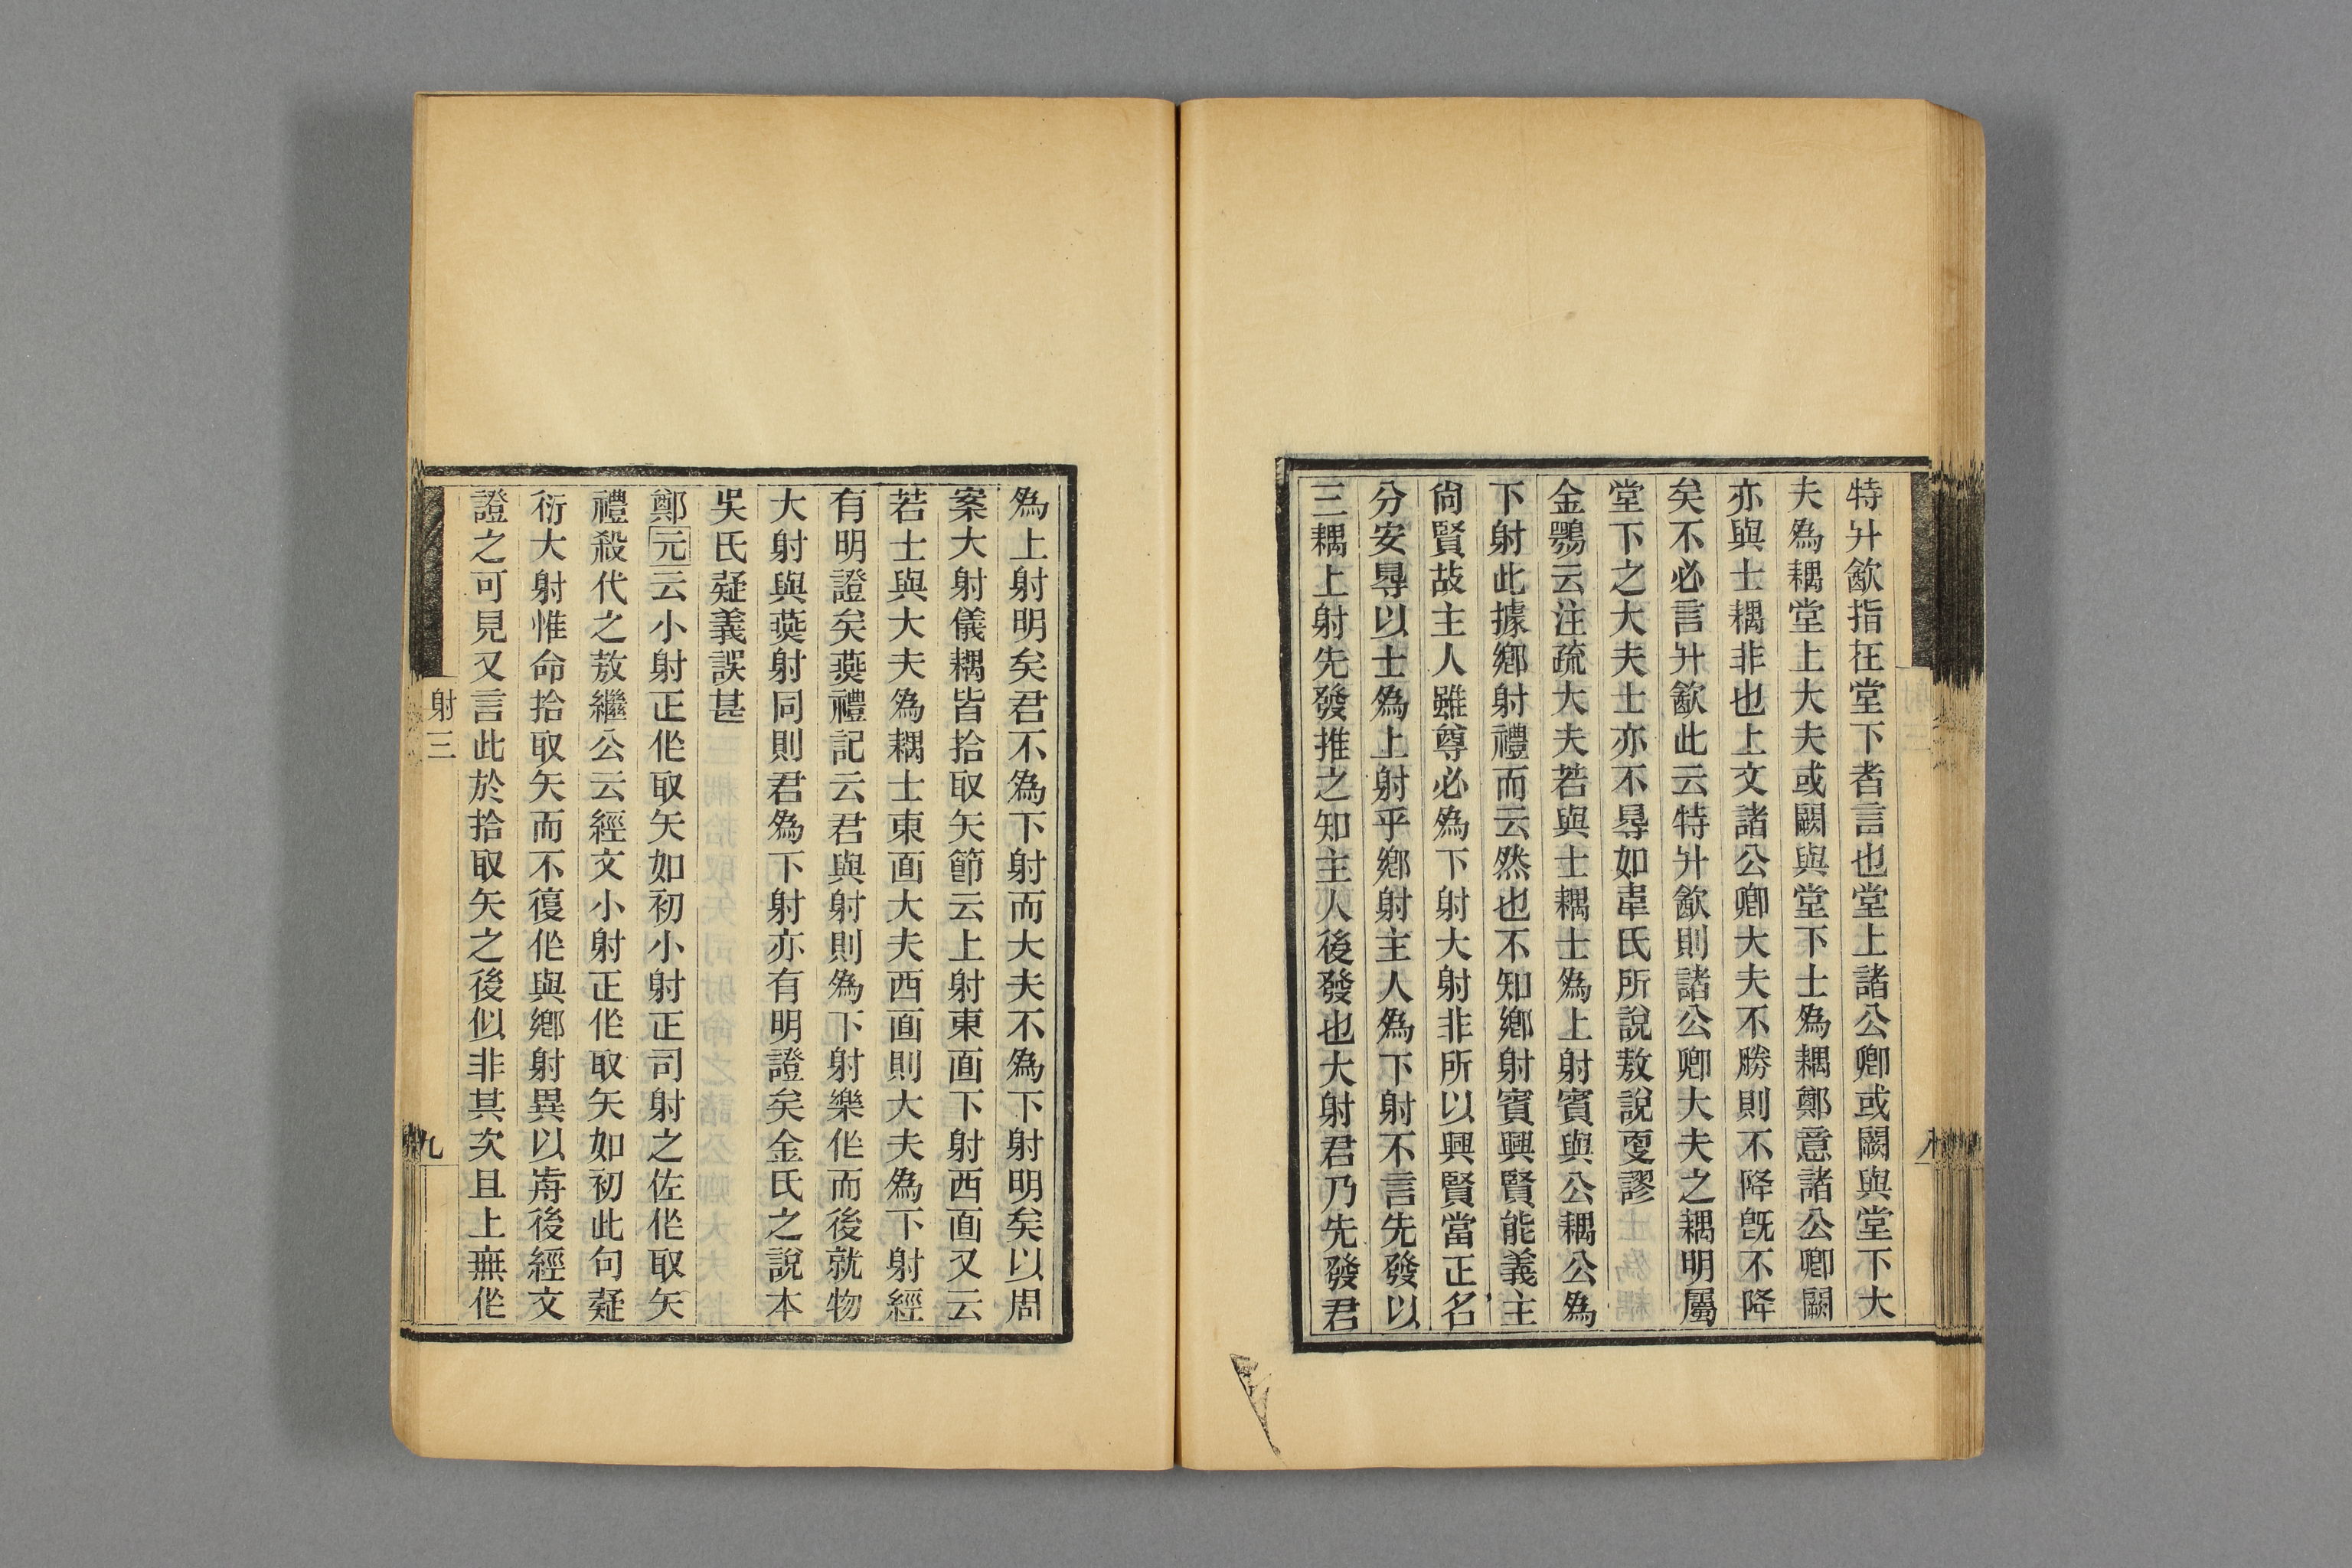 特升飮指在堂下者言也堂上諸公卿或闕與堂下大
夫爲耦堂上大夫或闕與堂下士爲耦鄭意諸公卿闕
亦與士耦非也上文諸公卿大夫不勝則不降旣不降
矣不必言升飮此云特升飮則諸公卿大夫之耦明屬
堂下之大夫士亦不㝵如韋氏所說敖說㪅謬
金鶚云注疏大夫若與士耦士爲上射賓與公耦公爲
下射此據鄕射禮而云然也不知鄕射賓興賢能義主
尙賢故主人雖尊必爲下射大射非所以興賢當正名
分安㝵以士爲上射乎鄕射主人爲下射不言先發以
三耦上射先發推之知主人後發也大射君乃先發君
八
爲上射明矣君不爲下射而大夫不爲下射明矣以周
案大射儀耦皆拾取矢節云上射東面下射西面又云
若士與大夫爲耦士東面大夫西面則大夫爲下射經
有明證矣燕禮記云君與射則爲下射樂作而後就物
大射與燕射同則君爲下射亦有明證矣金氏之說本
吳氏疑義誤甚
鄭元云小射正作取矢如初小射正司射之佐作取矢
禮殺代之敖繼公云經文小射正作取矢如初此句疑
衍大射惟命拾取矢而不復作與鄕射異以歬後經文
證之可見又言此於拾取矢之後似非其次且上無作
射三
九